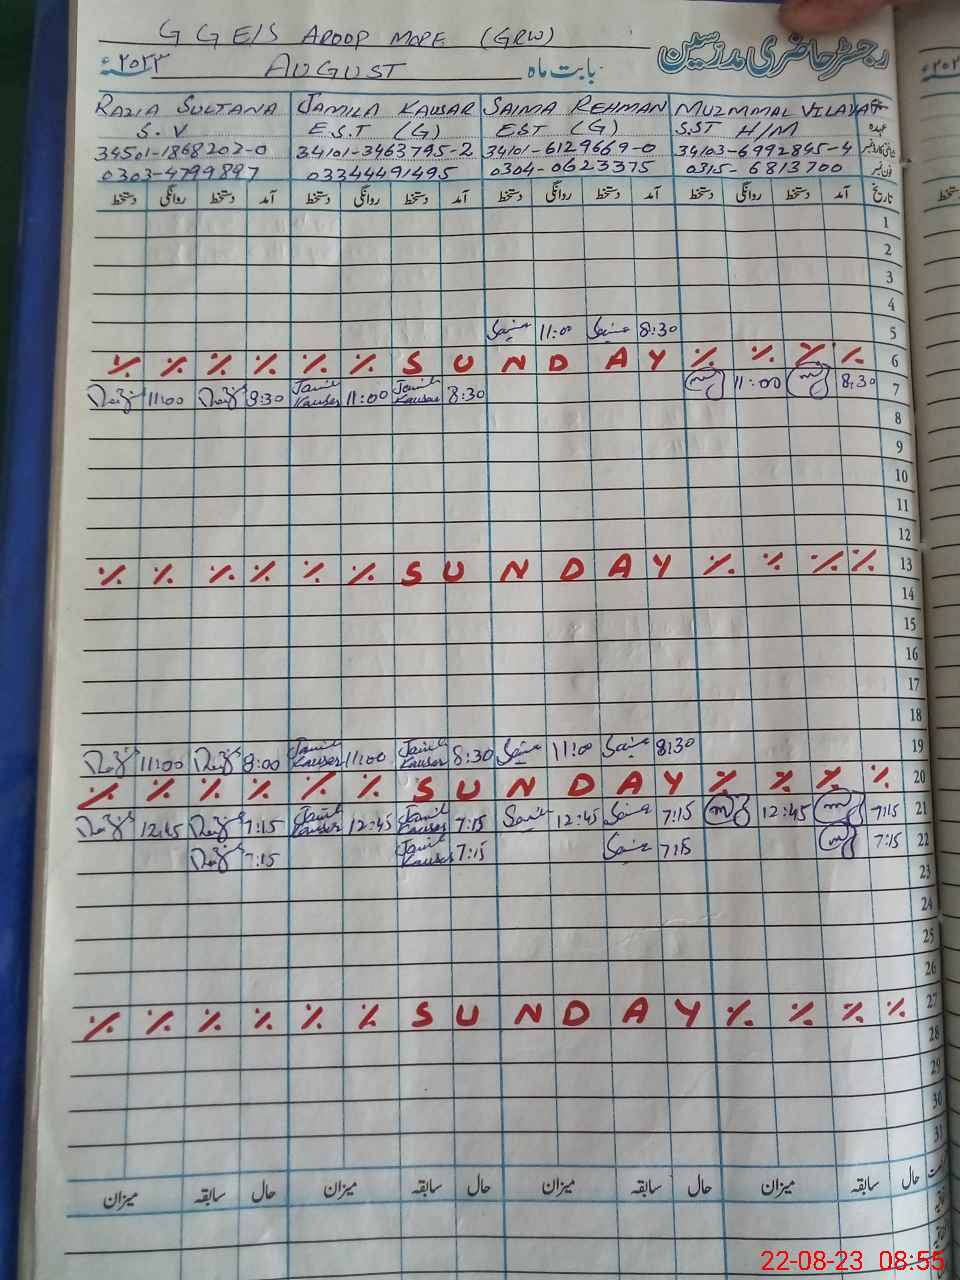 G G E/S AROOP MORE (GRW)
رجسٹر حاضری مدرسین
۲۰۲۳ء AUGUST بابت ماہ
RAZIA SULTANA JAMILA KAUSAR SAIMA REHMAN MUZMMAL VILAYAT
S.V E.S.T (G) EST (G) S.ST H/M عہدہ
34501-1868202-0 34101-3463795-2 34101-6129669-0 34103-6992845-4
0303-4799897 03344491495 0304-0623375 0315-6813700 فون نمبر
دستخط روانگی دستخط آمد دستخط روانگی دستخط آمد دستخط روانگی دستخط آمد دستخط روانگی دستخط آمد تاریخ
1
2
3
4
11:00 8:30 5
٪ ٪ ٪ ٪ ٪ ٪ S U N D A Y ٪ ٪ ٪ ٪ 6
11:00 8:30 Jamila Kausar 11:00 Jamila Kausar 8:30 11:00 8:30 7
8
9
10
11
12
٪ ٪ ٪ ٪ ٪ ٪ S U N D A Y ٪ ٪ ٪ ٪ 13
14
15
16
17
18
11:00 8:00 Jamila Kausar 11:00 Jamila Kausar 8:30 11:00 8:30 19
٪ ٪ ٪ ٪ ٪ ٪ S U N D A Y ٪ ٪ ٪ ٪ 20
12:45 7:15 Jamila Kausar 12:45 Jamila Kausar 7:15 12:45 7:15 12:45 7:15 21
7:15 Jamila Kausar 7:15 7:15 7:15 22
23
24
25
26
٪ ٪ ٪ ٪ ٪ ٪ S U N D A Y ٪ ٪ ٪ ٪ 27
28
29
30
31
میزان سابقہ حال میزان سابقہ حال میزان سابقہ حال میزان سابقہ حال
22-08-23 08:55